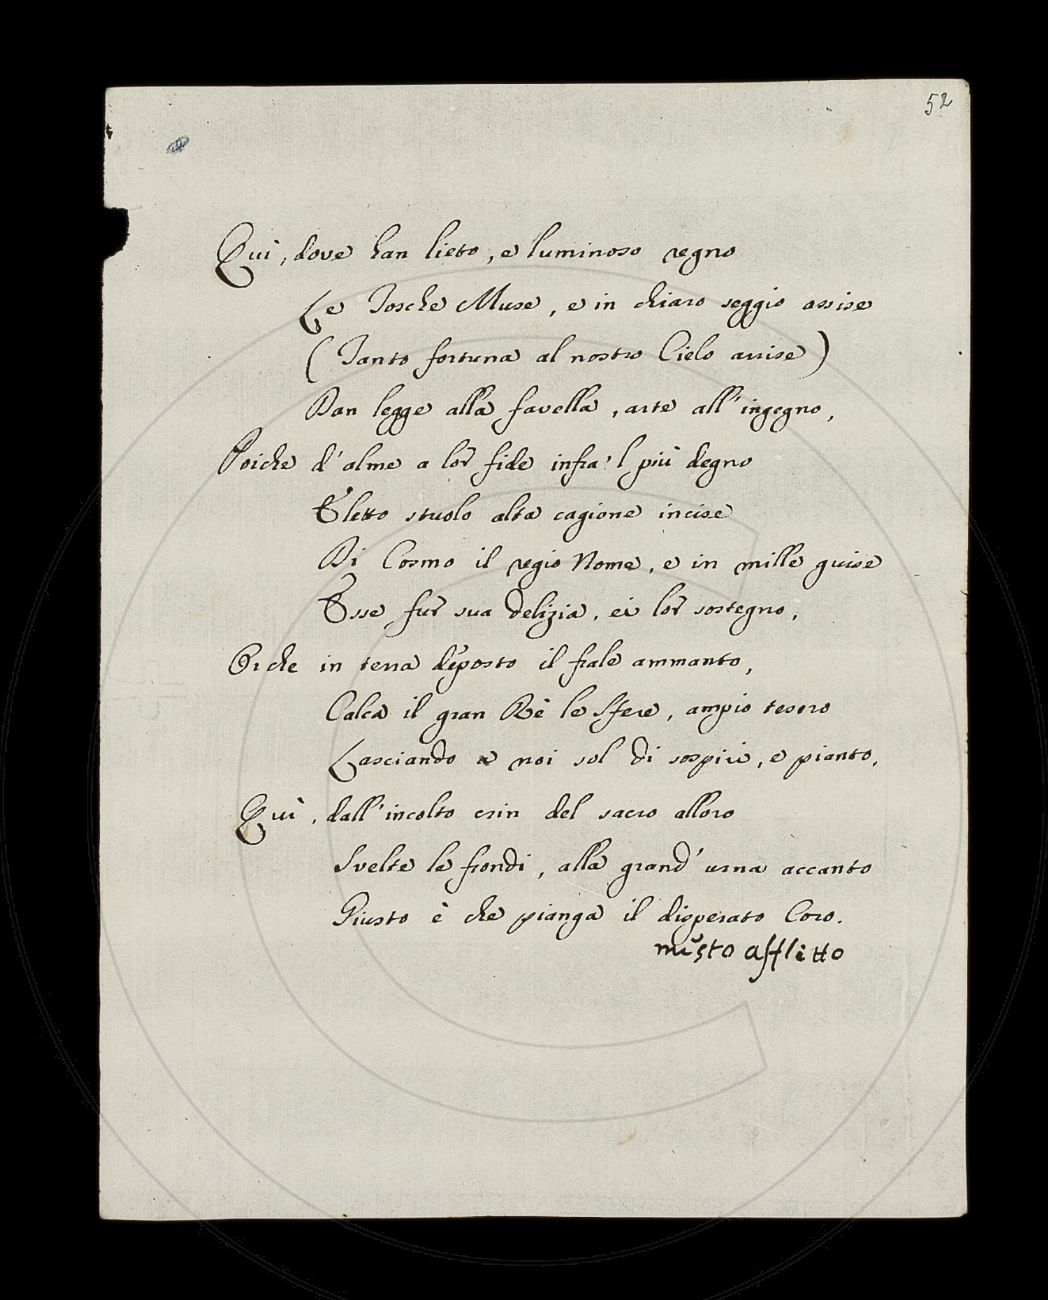 52
Quì, dove han lieto, e luminoso regno
Le Tosche Muse, e in chiaro seggio assise
(Tanto fortuna al nostro Cielo arrise)
Dan legge alla favella, arte all'ingegno,
Poiche d'alme a lor fide infra 'l più degno
Eletto stuolo alta cagione incise
Di Cosmo il regio Nome, e in mille guise
Esse fur sua delizia, ei lor sostegno,
Or che in terra deposto il frale ammanto,
Calca il gran Rè le Sfere, ampio tesoro
Lasciando a noi sol di sospiri, e pianto,
Quì, dall'incolto crin del sacro alloro
Svelte le frondi, alla grand'urna accanto
Giusto è che pianga il disperato Coro.
misto afflitto